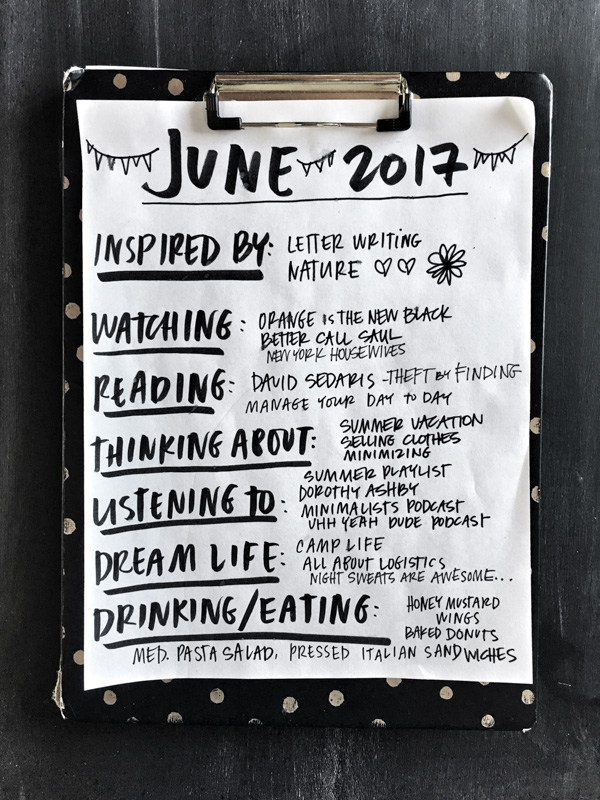 JUNE 2017
INSPIRED BY: LETTER WRITING
NATURE
WATCHING: ORANGE IS THE NEW BLACK
BETTER CALL SAUL
NEW YORK HOUSEWIVES
READING: DAVID SEDARIS - THEFT BY FINDING
MANAGE YOUR DAY TO DAY
THINKING ABOUT: SUMMER VACATION
SELLING CLOTHES
MINIMIZING
LISTENING TO: SUMMER PLAYLIST
DOROTHY ASHBY
MINIMALISTS PODCAST
UHH YEAH DUDE PODCAST
DREAM LIFE: CAMP LIFE
ALL ABOUT LOGISTICS
NIGHT SWEATS ARE AWESOME...
DRINKING/EATING: HONEY MUSTARD
WINGS
BAKED DONUTS
MED. PASTA SALAD, PRESSED ITALIAN SANDWICHES